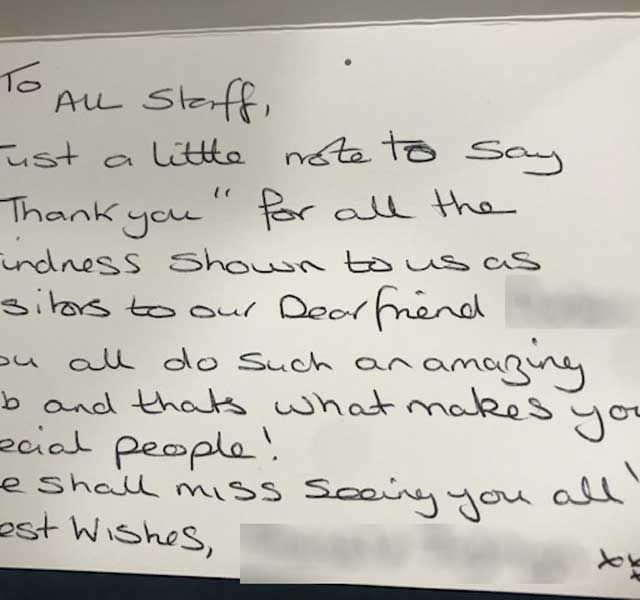 To
All Staff,
ust a little note to say
Thank you" for all the
indness shown to us as
sitors to our Dear friend
ou all do such an amazing
b and thats what makes you
ecial people!
e shall miss seeing you all!
est Wishes,
xx